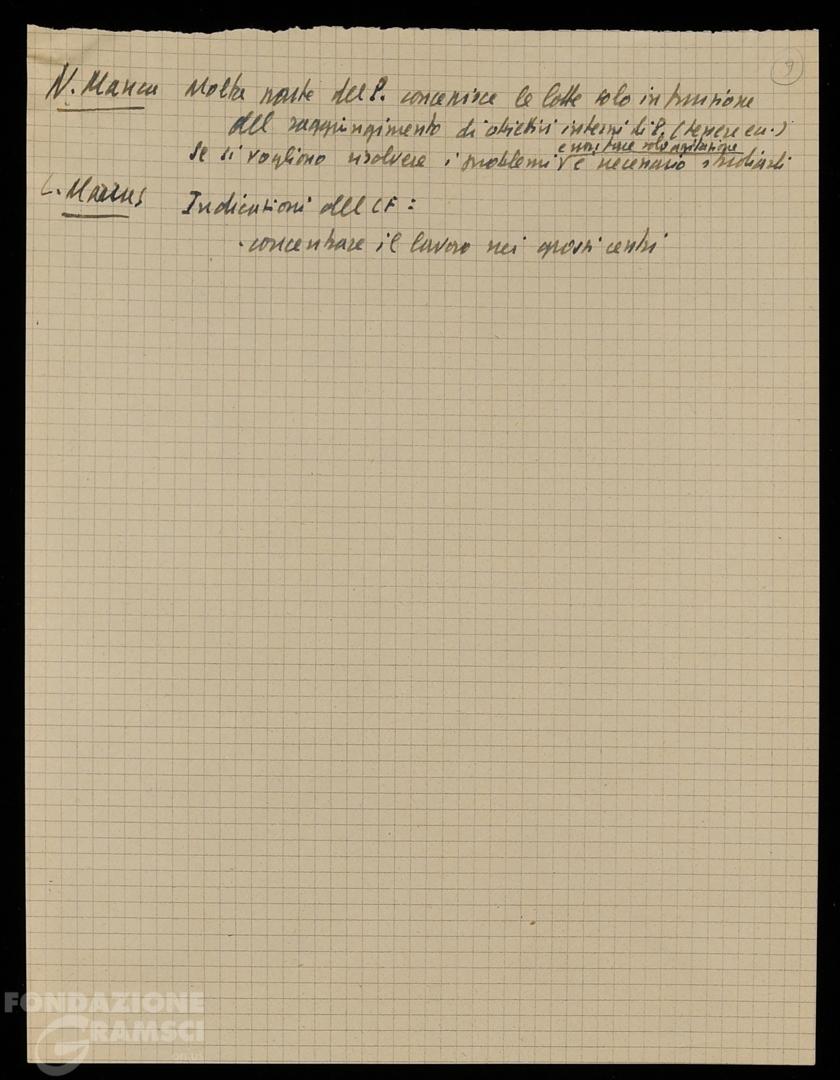 9
N. Manca Molta parte del P. concepisce le lotte solo in funzione
del raggiungimento di obiettivi interni di P. (tessere ecc.)
e non fare solo agitazione
Se si vogliono risolvere i problemi V è necessario studiarli
L. Marras Indicazioni del CF:
- concentrare il lavoro nei grossi centri
FONDAZIONE
GRAMSCI
onlus